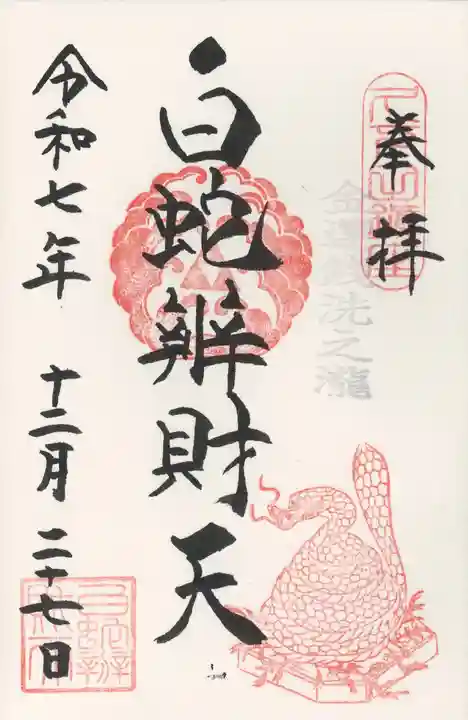 奉拝
金運銭洗之瀧
白蛇辨財天
令和七年 十二月 二十七日